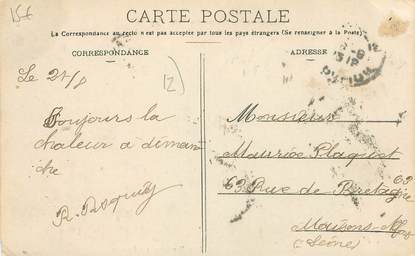 CARTE POSTALE
La Correspondance au recto n'est pas acceptée par tous les pays étrangers (Se renseigner à la Poste)
CORRESPONDANCE
ADRESSE
Le 21/8
Toujours la
chaleur a diman
che
Monsieur
Maurice Plaquet
63 Rue de Bretagne 63
Maisons-
(Seine)